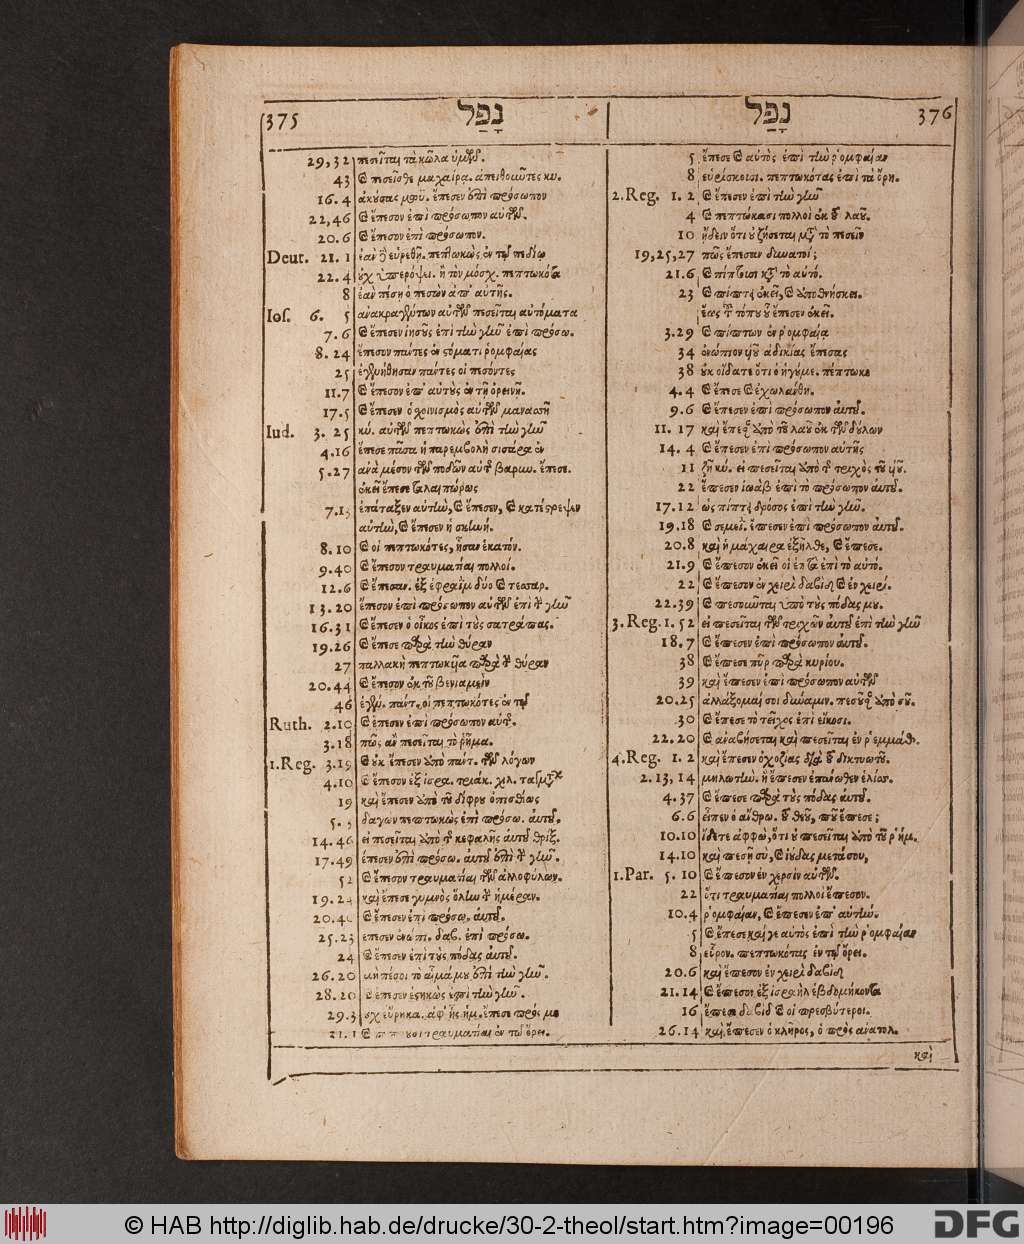 375 נָפַל
29,32 πεσεῖται τὰ κῶλα ὑμῶν.
43 καὶ πεσεῖσθε μαχαίρᾳ. ἀπειθοῦντες κυ.
16.4 ἀκούσας μωϋ. ἔπεσεν ἐπὶ πρόσωπον
22,46 καὶ ἔπεσον ἐπὶ πρόσωπον αὐτῶν.
20.6 καὶ ἔπεσον ἐπὶ πρόσωπον.
Deut. 21.1 ἐὰν δὲ εὑρεθῇ. πεπτωκὼς ἐν τῷ πεδίῳ
22.4 οὐχ ὑπερόψει. ἢ τὸν μόσχ. πεπτωκότα
8 ἐὰν πέσῃ ὁ πεσὼν ἀπ' αὐτῆς.
Ios. 6.5 ἀνακραγόντων αὐτῶν πεσεῖται αὐτόματα
7.6 καὶ ἔπεσεν ἰησοῦς ἐπὶ τὴν γῆν ἐπὶ πρόσω.
8.24 ἔπεσον πάντες ἐν στόματι ῥομφαίας
25 ἐγενήθησαν πάντες οἱ πεσόντες
11.7 καὶ ἔπεσον ἐπ' αὐτοὺς ἐν τῇ ὀρεινῇ.
17.5 καὶ ἔπεσεν ὁ σχοινισμὸς αὐτῶν μανασσῆ
Iud. 3.25 κύ. αὐτῶν πεπτωκὼς ἐπὶ τὴν γῆν
4.16 ἔπεσε πᾶσα ἡ παρεμβολὴ σισάρα ἐν
5.27 ἀνὰ μέσον τῶν ποδῶν αὐτῆς βαρυν. ἔπεσε.
ἐκεῖ ἔπεσε ταλαιπώρως
7.13 ἐπάταξεν αὐτὴν, καὶ ἔπεσεν, καὶ κατέστρεψεν
αὐτὴν, καὶ ἔπεσεν ἡ σκηνή.
8.10 καὶ οἱ πεπτωκότες, ἦσαν ἑκατόν.
9.40 καὶ ἔπεσον τραυματίαι πολλοί.
12.6 καὶ ἔπεσαν. ἐξ ἐφραῒμ δύο καὶ τεσσαρ.
13.20 ἔπεσον ἐπὶ πρόσωπον αὐτῶν ἐπὶ τὴν γῆν
16.31 καὶ ἔπεσεν ὁ οἶκος ἐπὶ τοὺς σατράπας.
19.26 καὶ ἔπεσε παρὰ τὴν θύραν
27 παλλακὴ πεπτωκυῖα παρὰ τὴν θύραν
20.44 καὶ ἔπεσον ἐκ τοῦ βενιαμεὶν
46 ἐγέν. πάντ. οἱ πεπτωκότες ἐν τῷ
Ruth. 2.10 καὶ ἔπεσεν ἐπὶ πρόσωπον αὐτῆς.
3.18 πῶς ἂν πεσεῖται τὸ ῥῆμα.
1.Reg. 3.19 καὶ οὐκ ἔπεσεν ὑπὸ πάντ. τῶν λόγων
4.10 καὶ ἔπεσον ἐξ ἰσρα. τριάκ. χιλ. ταγμάτ.
19 καὶ ἔπεσεν ὑπὸ τοῦ δίφρου ὀπισθίως
5. δαγὼν πεπτωκὼς ἐπὶ πρόσω. αὐτοῦ.
14.46 εἰ πεσεῖται ὑπὸ τῆς κεφαλῆς αὐτοῦ θρίξ.
17.49 ἔπεσεν ἐπὶ πρόσω. αὐτοῦ ἐπὶ τὴν γῆν.
52 καὶ ἔπεσον τραυματίαι τῶν ἀλλοφύλων.
19.24 καὶ ἔπεσε γυμνὸς ὅλην τὴν ἡμέραν.
20.4 καὶ ἔπεσεν ἐπὶ πρόσω. αὐτοῦ.
25.23 ἔπεσεν ἐνώπι. δαβ. ἐπὶ πρόσω.
24 καὶ ἔπεσεν ἐπὶ τοὺς πόδας αὐτοῦ.
26.20 μὴ πέσοι τὸ αἷμά μου ἐπὶ τὴν γῆν.
28.20 καὶ ἔπεσεν ἑστηκὼς ἐπὶ τὴν γῆν.
29.3 οὐχ εὕρηκα. ἀφ' ἧς ἡμ. ἔπεσε πρός με
31.1 καὶ πίπτουσι τραυματίαι ἐν τῷ ὄρει.
נָפַל 376
5 ἔπεσε καὶ αὐτὸς ἐπὶ τὴν ῥομφαίαν
8 εὑρίσκουσι. πεπτωκότας ἐπὶ τὰ ὄρη.
2.Reg. 1.2 καὶ ἔπεσεν ἐπὶ τὴν γῆν
4 καὶ πεπτώκασι πολλοὶ ἐκ τοῦ λαοῦ.
10 ᾔδειν ὅτι οὐ ζήσεται μετὰ τὸ πεσεῖν
19,25,27 πῶς ἔπεσαν δυνατοί;
21.6 καὶ πίπτουσι κατὰ τὸ αὐτό.
23 καὶ πίπτει ἐκεῖ, καὶ ὑποθνήσκει.
ἕως τοῦ τόπου οὗ ἔπεσεν ἐκεῖ.
3.29 καὶ πίπτων ἐν ῥομφαίᾳ
34 ἐνώπιον υἱοῦ ἀδικίας ἔπεσας
38 οὐκ οἴδατε ὅτι ὁ ἡγούμε. πέπτωκε
4.4 καὶ ἔπεσε καὶ ἐχωλάνθη.
9.6 καὶ ἔπεσεν ἐπὶ πρόσωπον αὐτοῦ.
11.17 καὶ ἔπεσον ὑπὸ τοῦ λαοῦ ἐκ τῶν δούλων
14.4 καὶ ἔπεσεν ἐπὶ πρόσωπον αὐτῆς
11 ζῇ κύ. εἰ πεσεῖται ἀπὸ τῆς τριχὸς τοῦ υἱοῦ.
22 ἔπεσεν ἰωὰβ ἐπὶ τὸ πρόσωπον αὐτοῦ.
17.12 ὡς πίπτει δρόσος ἐπὶ τὴν γῆν.
19.18 καὶ σεμεῒ. ἔπεσεν ἐπὶ πρόσωπον αὐτοῦ.
20.8 καὶ ἡ μάχαιρα ἐξῆλθε, καὶ ἔπεσε.
21.9 καὶ ἔπεσον ἐκεῖ οἱ ἑπτὰ ἐπὶ τὸ αὐτό.
22 καὶ ἔπεσον ἐν χειρὶ δαβὶδ καὶ ἐν χειρί.
22.39 καὶ πεσοῦνται ὑπὸ τοὺς πόδας μου.
3.Reg. 1.52 εἰ πεσεῖται τῶν τριχῶν αὐτοῦ ἐπὶ τὴν γῆν
18.7 καὶ ἔπεσεν ἐπὶ πρόσωπον αὐτοῦ.
38 καὶ ἔπεσε πῦρ παρὰ κυρίου.
39 καὶ ἔπεσεν ἐπὶ πρόσωπον αὐτῶν
20.25 ἀλλάξομαί σοι δύναμιν. πεσοῦσαν ὑπὸ σοῦ.
30 καὶ ἔπεσε τὸ τεῖχος ἐπὶ εἴκοσι.
22.20 καὶ ἀναβήσεται καὶ πεσεῖται ἐν ῥεμμάθ.
4.Reg. 1.2 καὶ ἔπεσεν ὀχοζίας διὰ τοῦ δικτυωτοῦ.
2.13,14 μηλωτὴν. ἣ ἔπεσεν ἐπάνωθεν ἐλίας.
4.37 καὶ ἔπεσε παρὰ τοὺς πόδας αὐτοῦ.
6.6 εἶπεν ὁ ἄνθρω. τοῦ θεοῦ, ποῦ ἔπεσε;
10.10 ἴδετε ἀφφώ, ὅτι οὐ πεσεῖται ὑπὸ τοῦ ῥήμ.
14.10 καὶ πεσῇ σὺ, καὶ ἰούδας μετά σου,
1.Par. 5.10 καὶ ἔπεσον ἐν χερσὶν αὐτῶν.
22 ὅτι τραυματίαι πολλοὶ ἔπεσον.
10.4 ῥομφαίαν, καὶ ἔπεσεν ἐπ' αὐτήν.
5 καὶ ἔπεσε καί γε αὐτὸς ἐπὶ τὴν ῥομφαίαν
8 εὗρον. πεπτωκότας ἐν τῷ ὄρει.
20.6 καὶ ἔπεσον ἐν χειρὶ δαβὶδ
21.14 καὶ ἔπεσον ἐξ ἰσραὴλ ἑβδομήκοντα
16 ἔπεσε δαβὶδ καὶ οἱ πρεσβύτεροι.
26.14 καὶ ἔπεσεν ὁ κλῆρος, ὁ πρὸς ἀνατολ.
καὶ
© HAB http://diglib.hab.de/drucke/30-2-theol/start.htm?image=00196
DFG